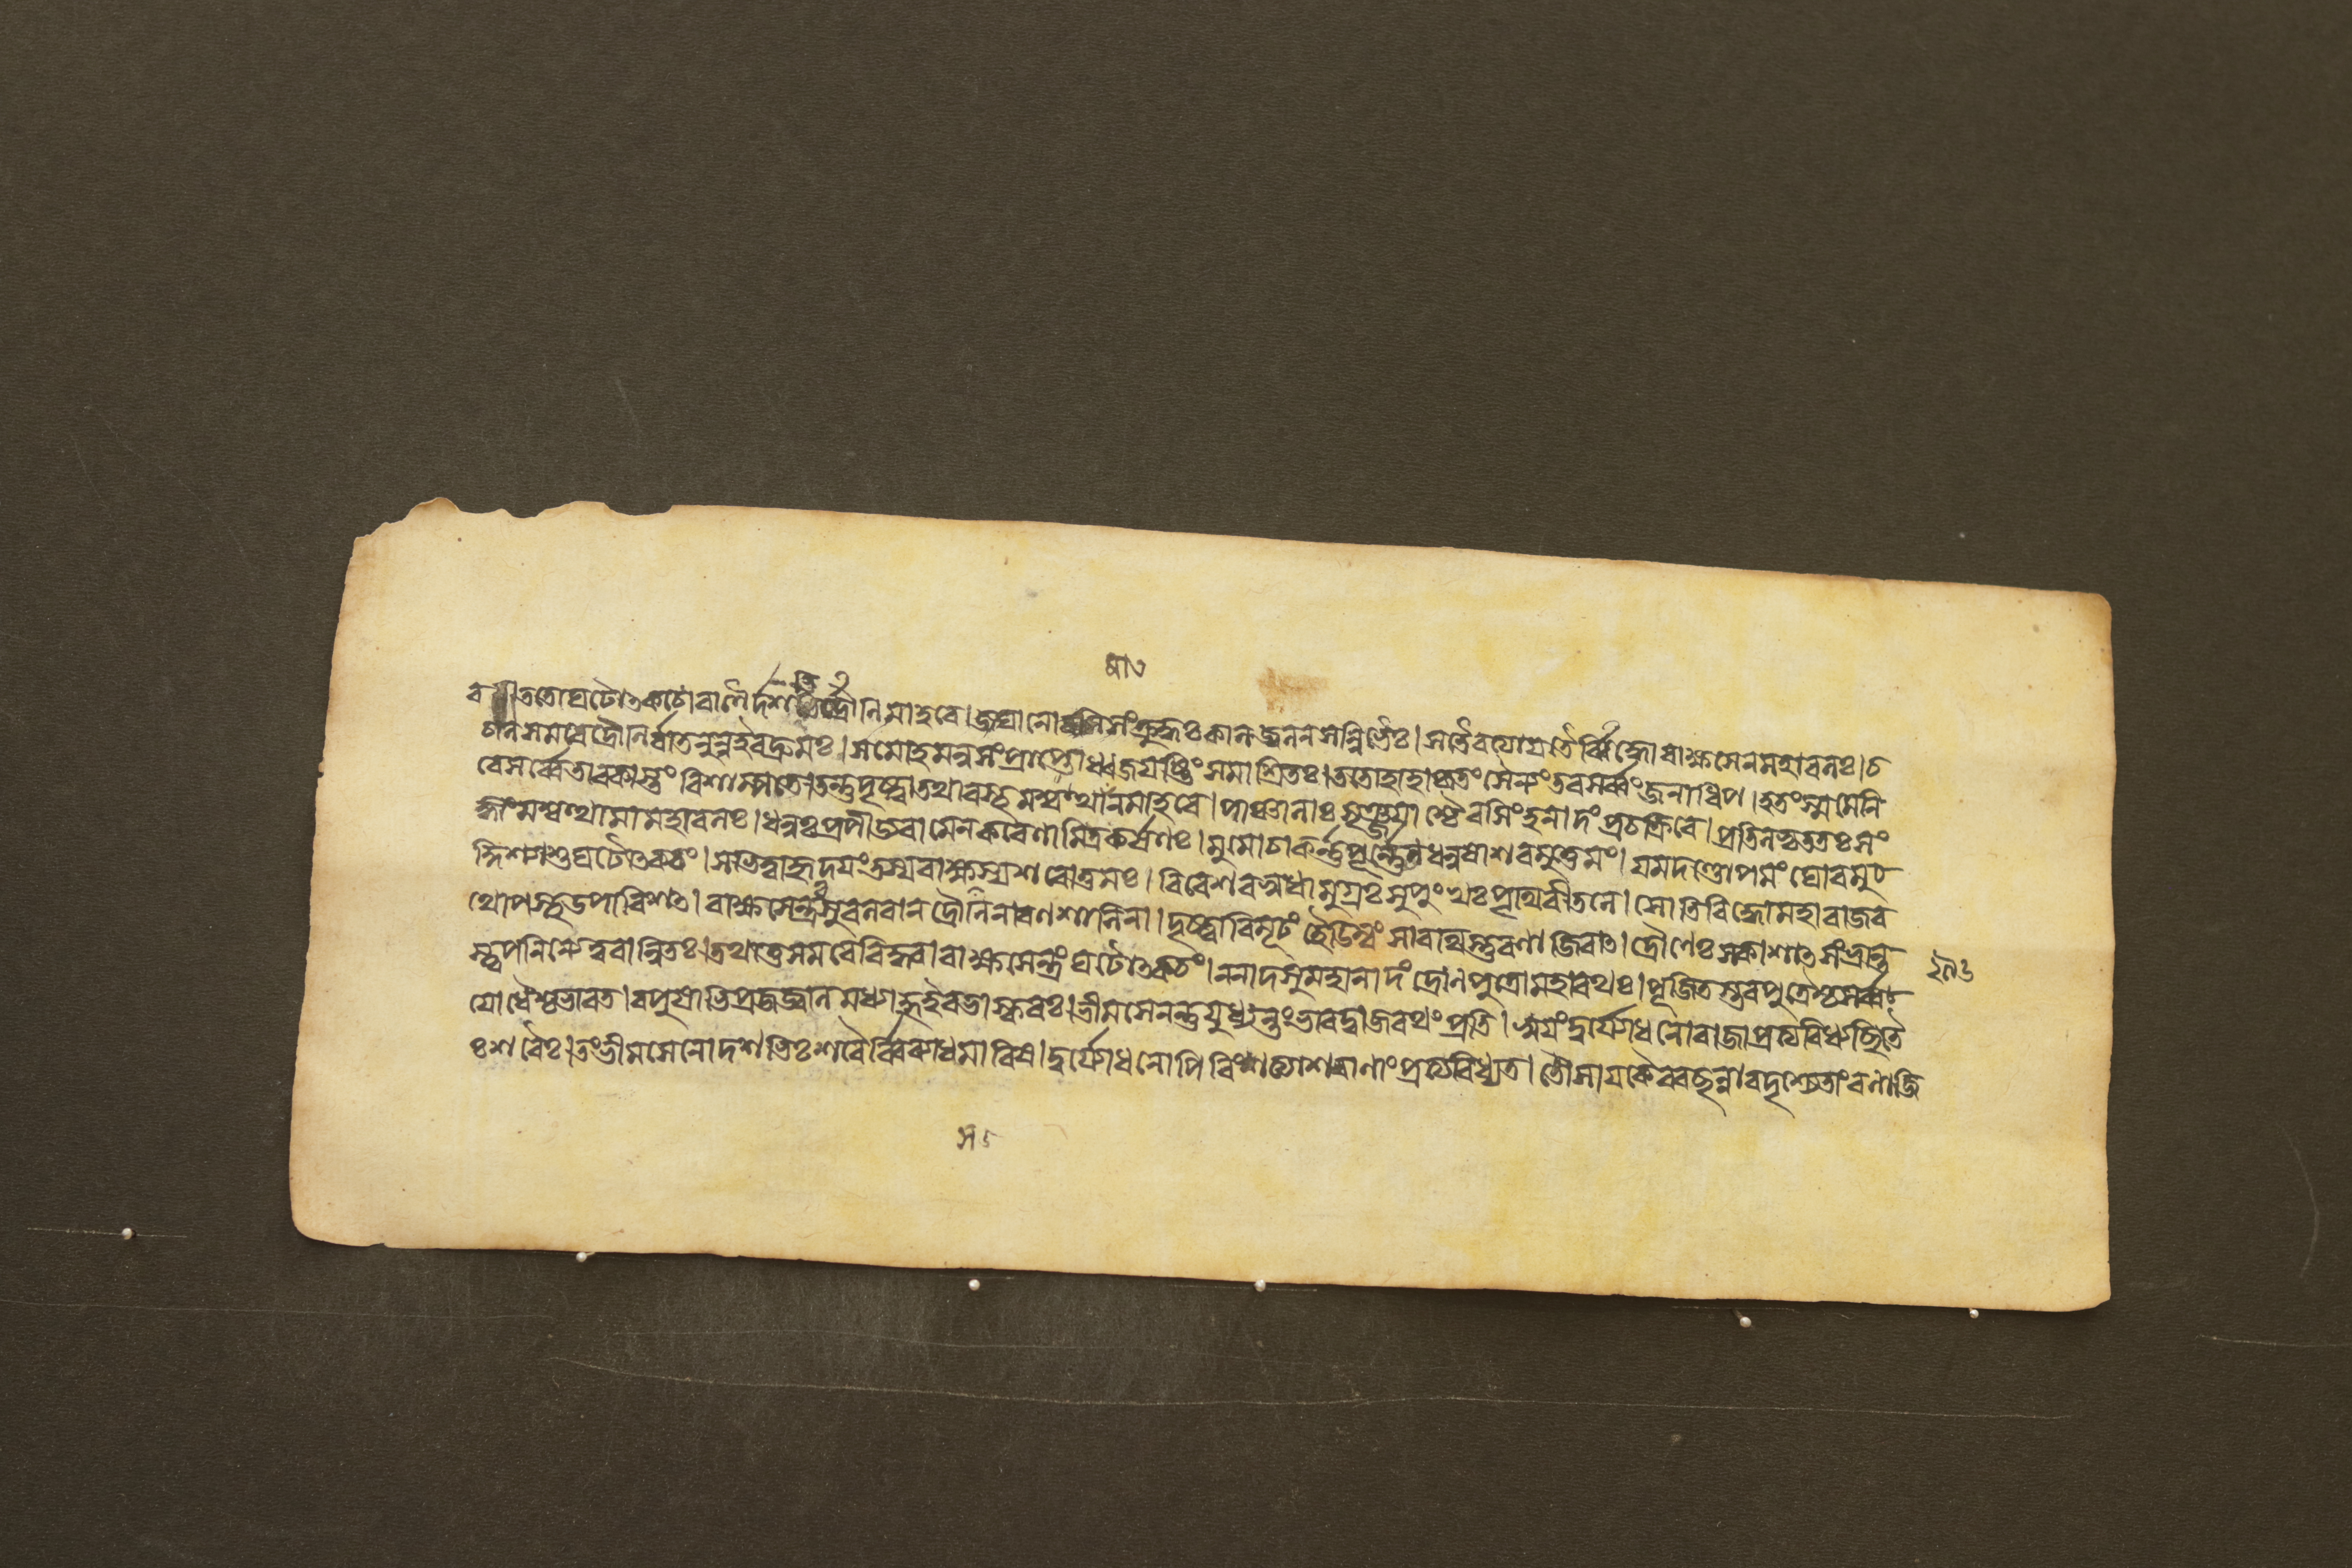 ততোঘটোৎকচোবাণৈর্দশভির্দ্রৌণিমাহবে। জঘানোরসিসংক্রুদ্ধঃকালজ্বলনসন্নিভৈঃ। সতৈরভ্যায়তৈর্বিদ্ধোরাক্ষসেনমহাবলঃ। চ
চালসমরেদ্রৌণির্বাতনুন্নইবদ্রুমঃ। সমোহমনুসংপ্রাপ্তোধ্বজযষ্টিংসমাশ্রিতঃ। ততোহাহাকৃতংসৈন্যংতবসর্ব্বংজনাধিপ। হতংস্মমেনি
রেসর্ব্বেতাবকাস্তংবিশাম্পতে। তন্তুদৃষ্ট্বাতথাবস্থমশ্বত্থামানমাহবে। পাঞ্চালাঃসৃঞ্জয়াশ্চৈবসিংহনাদংপ্রচক্রিরে। প্রতিলভ্যততঃসং
জ্ঞাংমশ্বত্থামামহাবলঃ। ধনুঃপ্রপীড্যবামেনকরেণামিত্রকর্ষণঃ। মুমোচাকর্ন্নপূর্ন্নেনধনুষাশরমুত্তমং। যমদণ্ডোপমংঘোরমু
দ্দিশ্যাশুঘটোৎকচং। সভিত্ত্বাহৃদয়ংতস্যরাক্ষসস্যশরোত্তমঃ। বিবেশবসুধামুগ্রঃসুপুংখঃপৃথিবীতলে। সোতিবিদ্ধোমহারাজর
থোপস্থউপাবিশৎ। রাক্ষসেন্দ্রঃসুবলবানদ্রৌণিনারণশালিনা। দৃষ্ট্বাবিমূঢ়ংহৈডিম্বংসারথিস্তুরণাজিরাৎ। দ্রৌণেঃসকাশাৎসংভ্রান্ত
স্ত্বপনিন্যেত্বরান্বিতঃ। তথাতুসমরেবিদ্ধ্বারাক্ষসেন্দ্রংঘটোৎকচং। ননাদসুমহানাদংদ্রোণপুত্রোমহারথঃ। পূজিতস্তবপুত্রৈশ্চসর্ব্ব
যোধৈশ্চভারত। বপুষাতিপ্রজজ্বালমধ্যাহ্নইবভাস্করঃ। ভীমসেনন্তুযুধ্যন্তংভারদ্বাজরথংপ্রতি। অয়ংদুর্যোধনোরাজাপ্রত্যবিধ্যচ্ছিতৈ
ঃশরৈঃ। তংভীমসেনোদশভিঃশরৈর্ব্বিব্যাধমারিষ। দুর্যোধনোপিবিংশত্যাশরাণাংপ্রত্যবিধ্যত। তৌসায়কৈরবচ্ছন্নাবদৃশ্যেতাংরণাজি